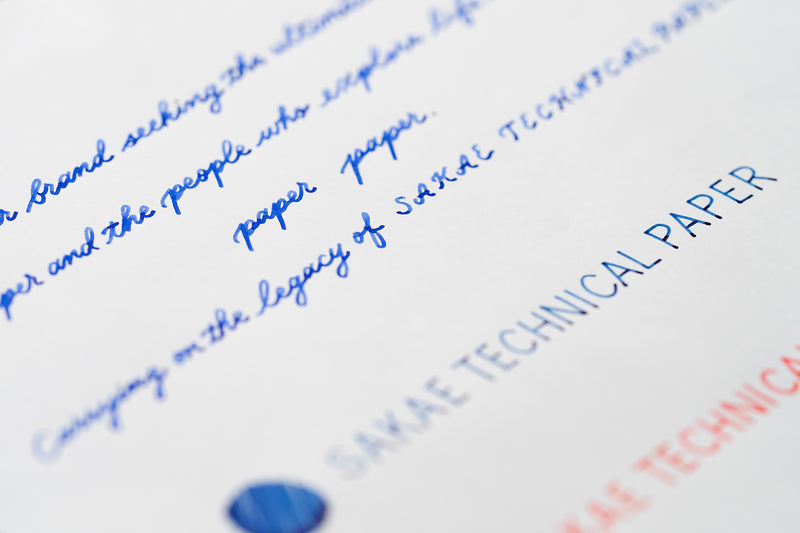 r brand seeking the ultimate
per and the people who explore life
paper paper.
Carrying on the legacy of SAKAE TECHNICAL PAPER
SAKAE TECHNICAL PAPER
KAE TECHNICAL